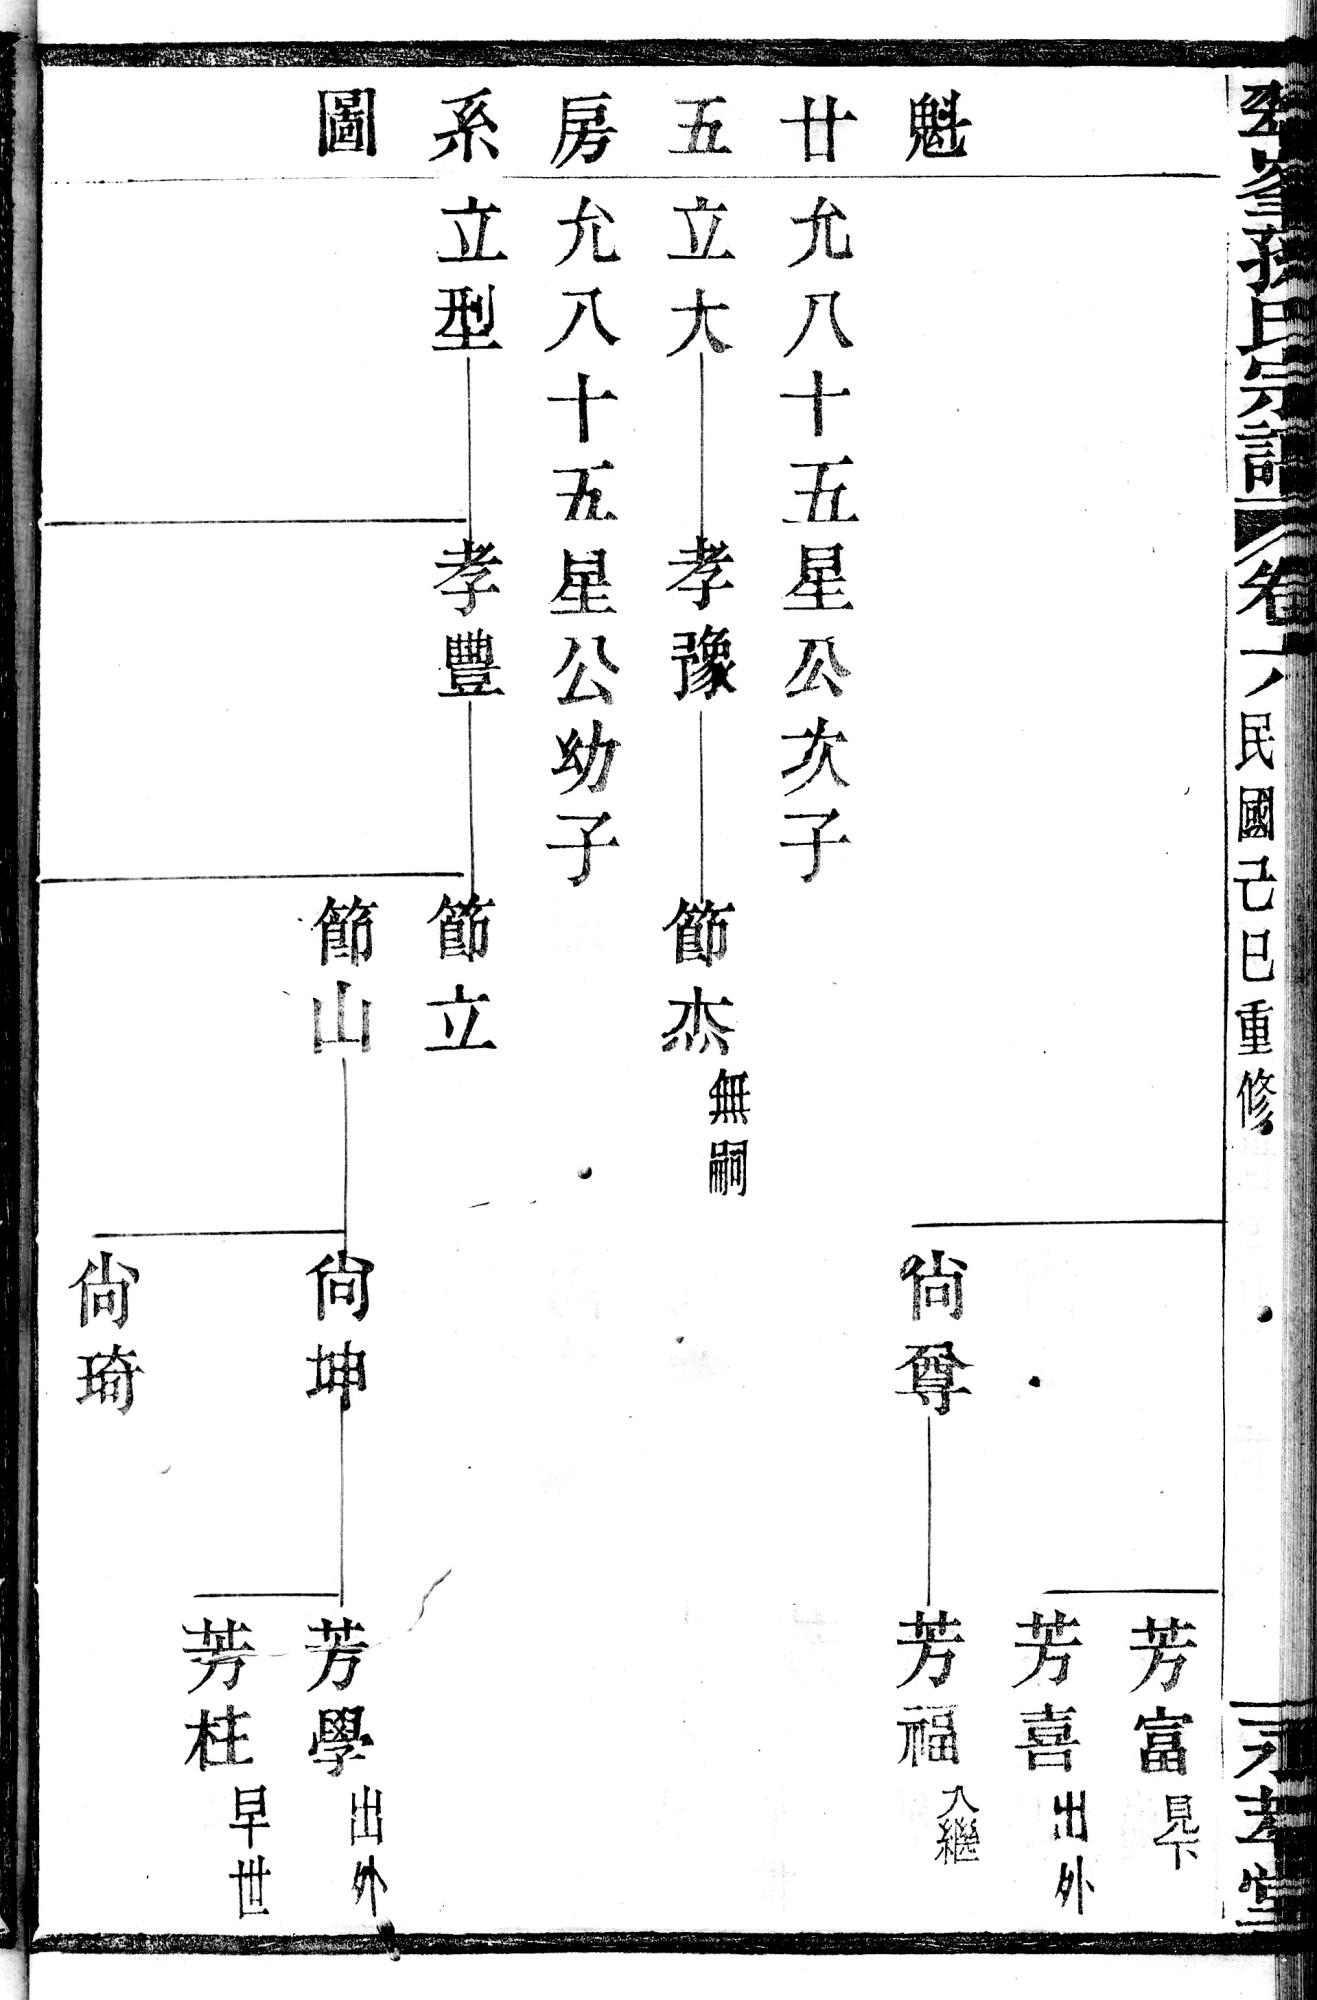 孫氏宗譜
卷
民國己巳重修
堂
魁廿五房系圖
芳富見下
芳喜出外
尙尊
芳福入繼
允八十五星公次子
立大
孝豫
節杰無嗣
允八十五星公幼子
立型
孝豐
節立
節山
尙坤
芳學出外
芳柱早世
尙琦